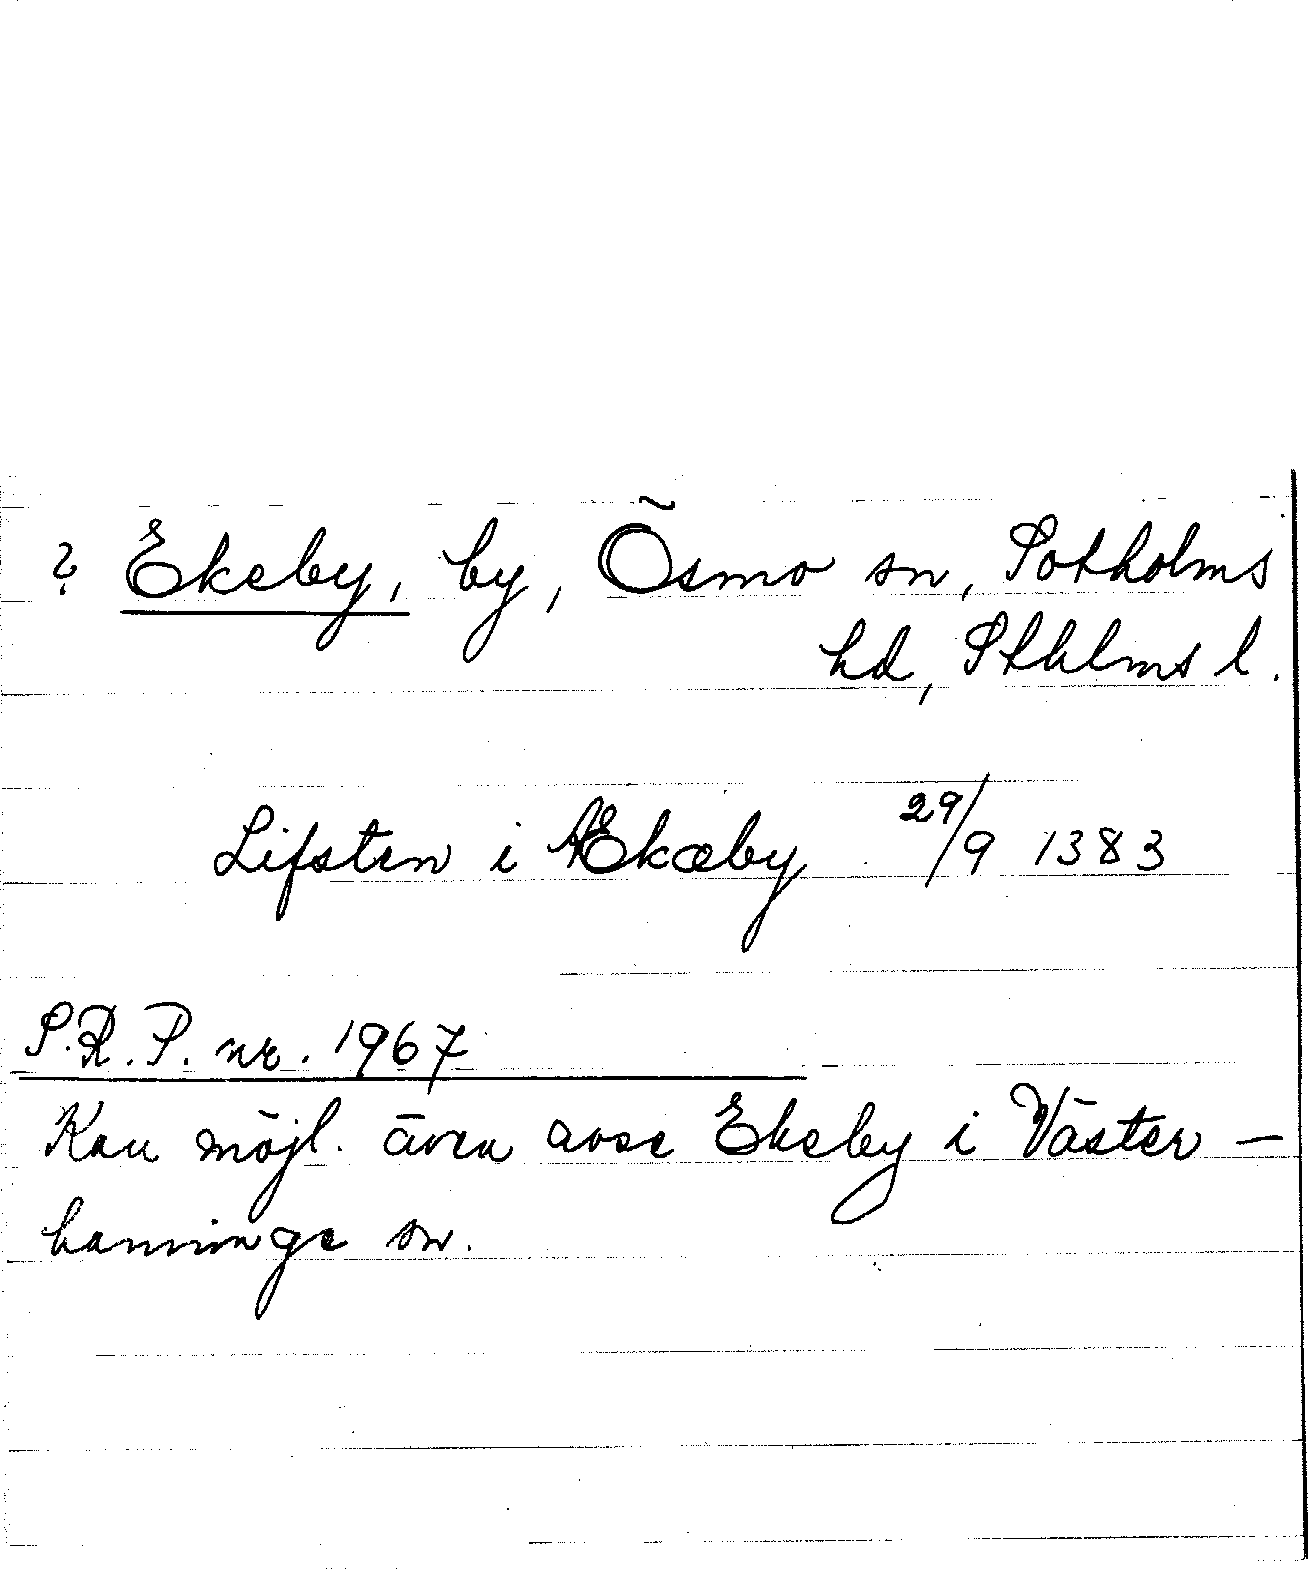 ? Ekeby, by, Ösmo sn, Sotholms
hd, Sthlms l.
Lifsten i Ækæby 29/9 1383
S.R.P. nr. 1967
Kan möjl. även avse Ekeby i Väster-
haninge sn.